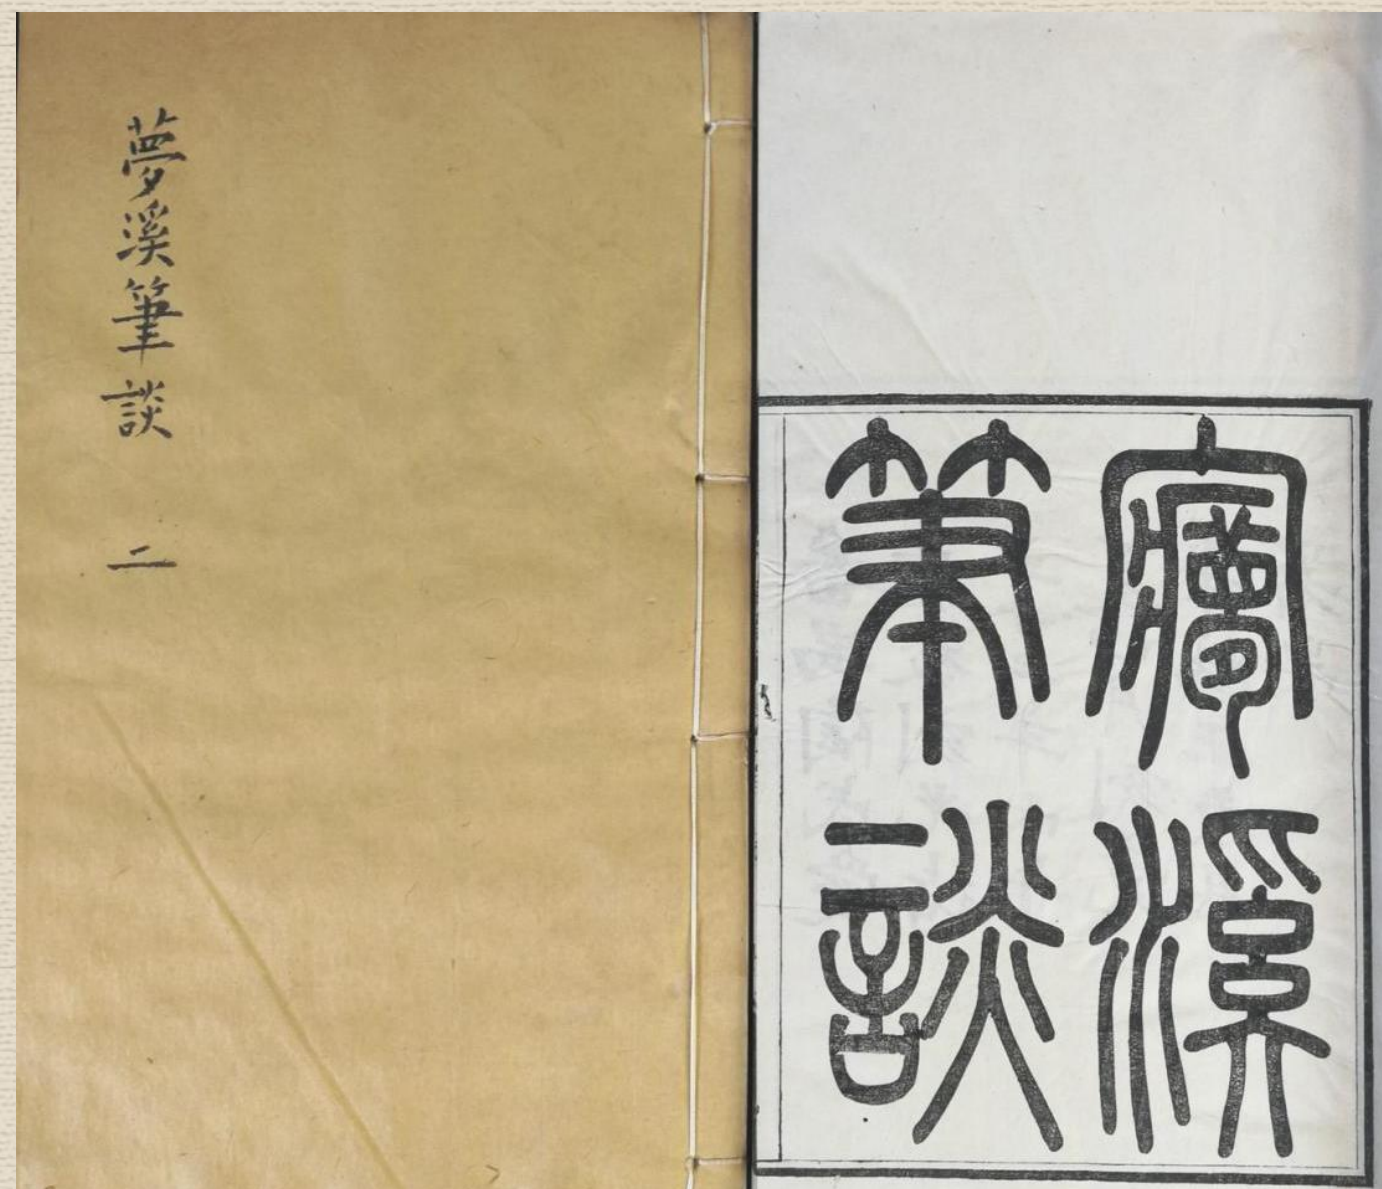 夢溪筆談 二
夢溪
筆談